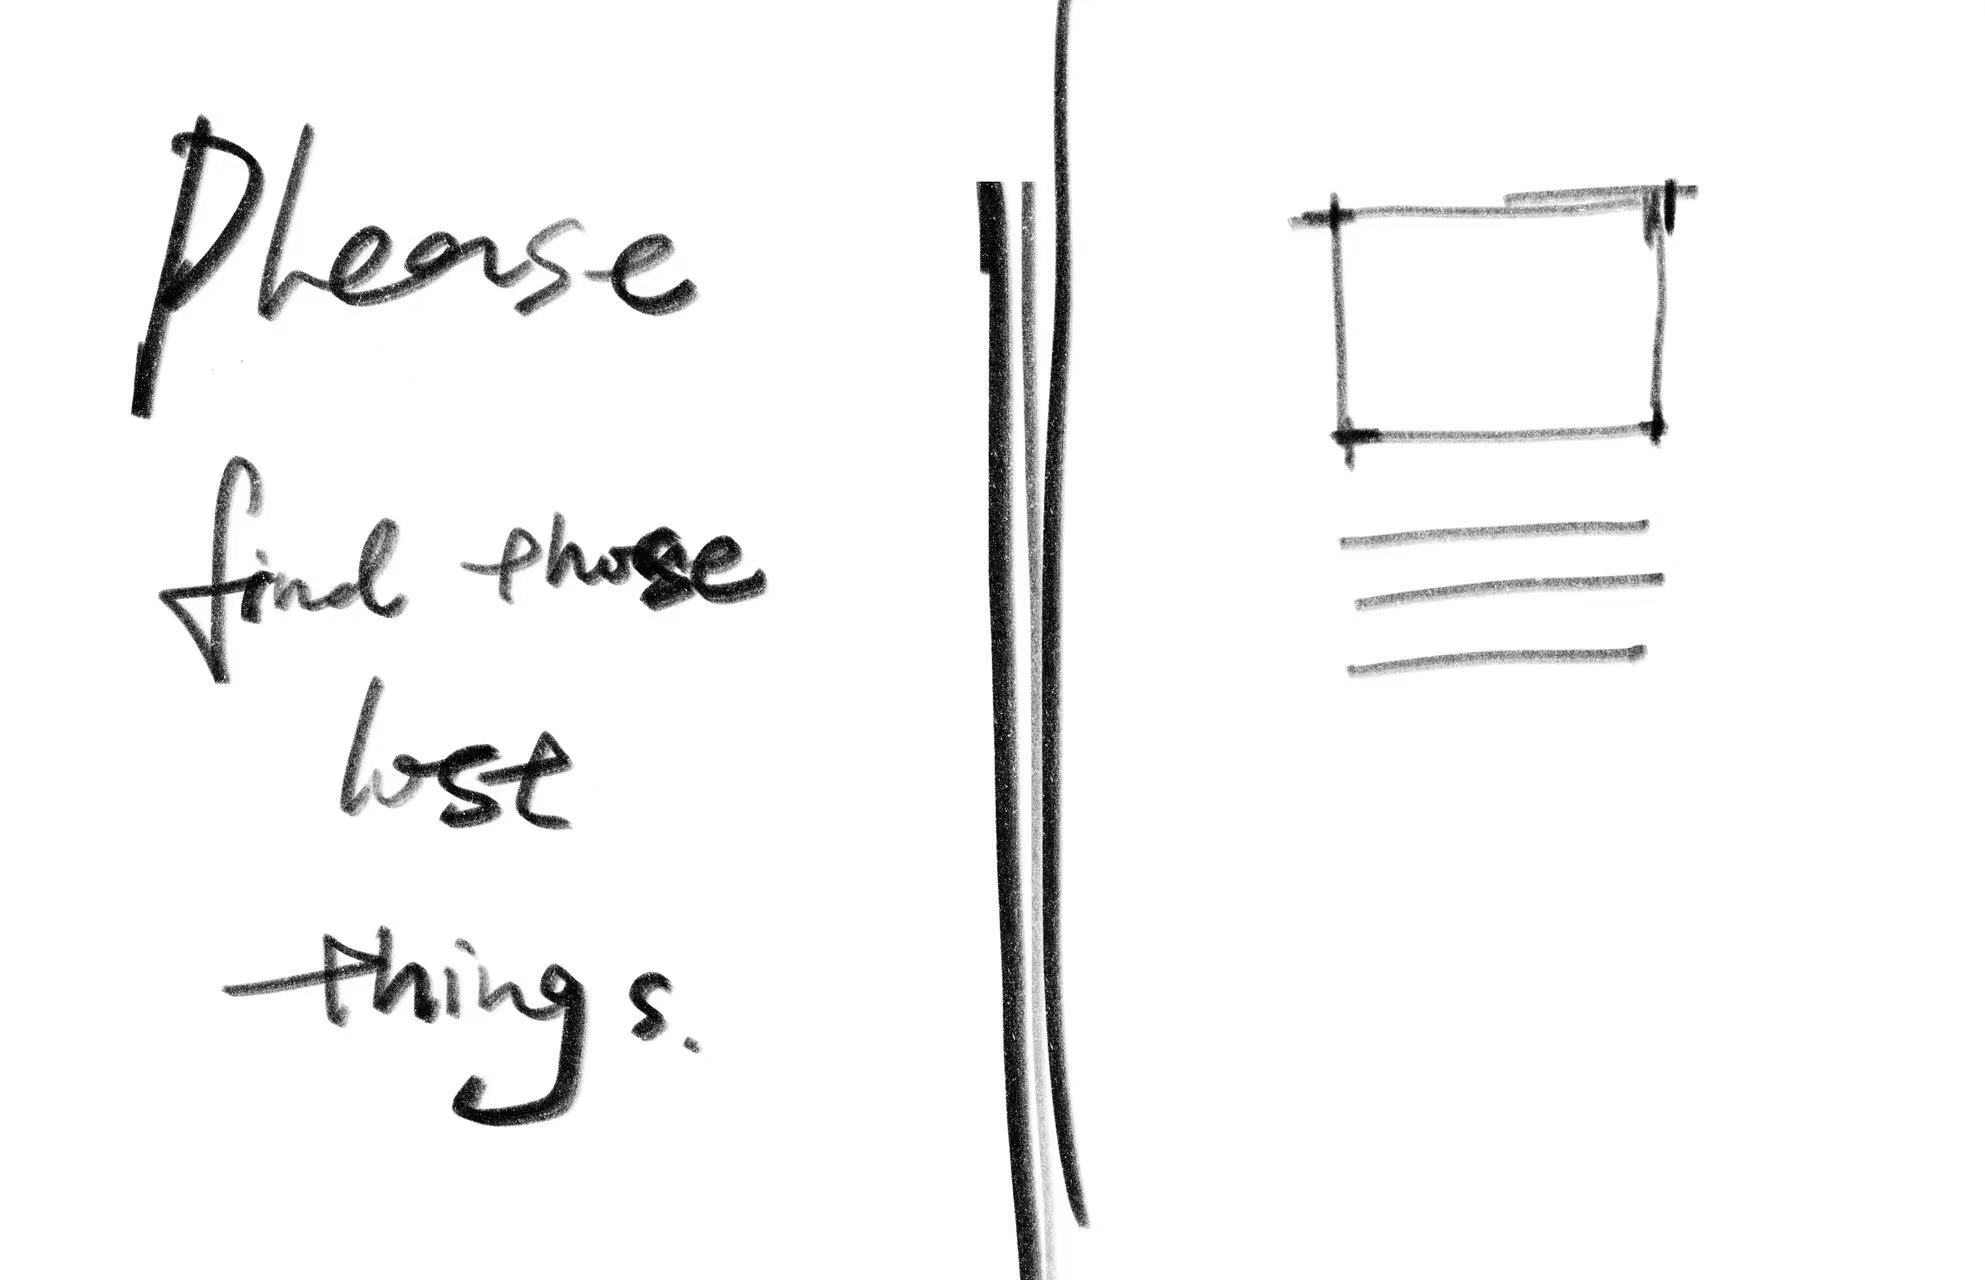 Please
find those
lost
things.